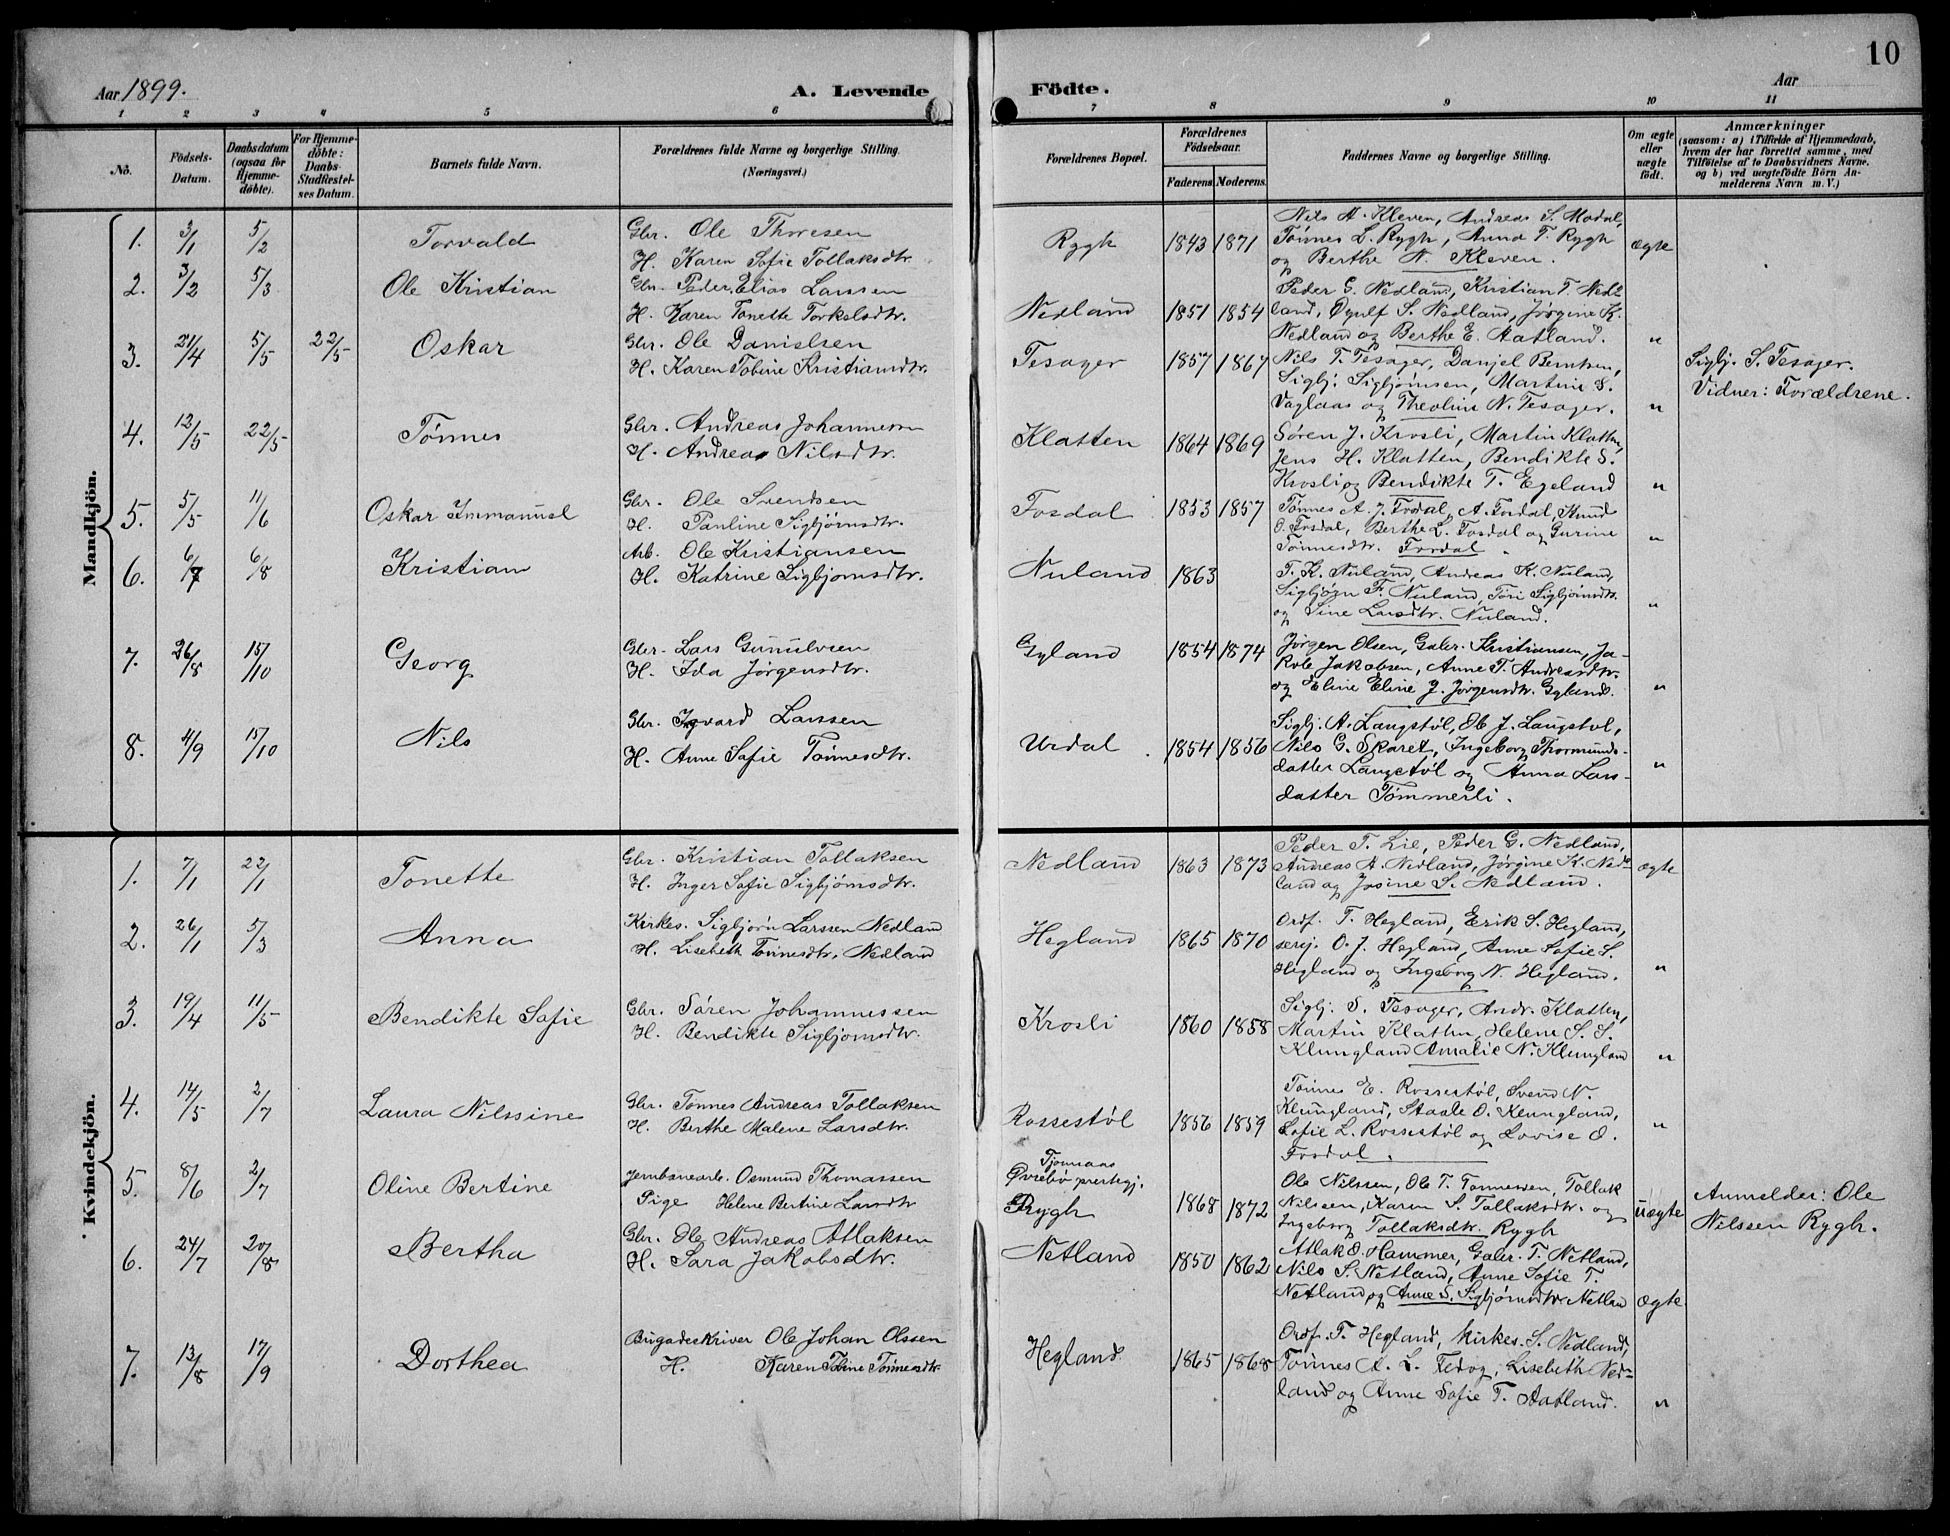 10
Aar 1899.
A. Levende
Födte.
Aar
1 2 3 4 5 6 7 8 9 10 11
No.
Födsels-Datum.
Daabsdatum (ogsaa för Hjemmedöbte).
For Hjemmedöbte: Daabs Stadfæstelses Datum.
Barnets fulde Navn.
Forældrenes fulde Navne og borgerlige Stilling. (Næringsvei.)
Forældrenes Bopæl.
Forældrenes Födselsaar.
Faderens. Moderens.
Faddernes Navne og borgerlige Stilling.
Om ægte eller uægte födt.
Anmærkninger
(saasom: a) i Tilfælde af Hjemmedaab, hvem der har forrettet samme, med Tilföielse af to Daabsvidners Navne. og b) ved uægtefödte Börn Anmelderens Navn m. V.)
Mandkjön.
1. 3/1 5/2 Torvald
Gbr. Ole Thoresen
H. Karen Sofie Tollaksdtr.
Rygh 1843 1871
Nils A. Kleven, Andreas S. Modal,
Tønnes L. Rygh, Anna T. Rygh
og Berthe N. Kleven.
ægte
2. 3/2 5/3 Ole Kristian
Gbr. Peder Elias Larssen
H. Karen Tonette Torkelsdtr.
Nedland 1851 1854
Peder G. Nedland, Kristian T. Nedland, S. Nedland, Jørgine K.
Nedland og Berthe E. Aatland.
"
3. 21/4 5/5 22/5 Oskar
Gbr. Ole Danielsen
H. Karen Tobine Kristiansdtr.
Tesager 1857 1867
Nils T. Tesager, Danjel Berntsen,
Sigbj. Sigbjørnsen, Martine S.
Vaglaas og Theoline N. Tesager.
"
Sigbj. S. Tesager.
Vidner: Forældrene.
4. 12/5 22/5 Tønnes
Gbr. Andreas Johannesen
H. Andrea Nilsdtr.
Klatten 1864 1869
Søren J. Krosli, Martin Klatten,
Jens H. Klatten, Bendikte S.
Krosli og Bendikte T. Egeland
"
5. 5/5 11/6 Oskar Immanuel
Gbr. Ole Svendsen
H. Pauline Sigbjørnsdtr.
Fosdal 1853 1857
Tønnes A. J. Fosdal, A. Fosdal, Knud
O. Fosdal, Berthe L. Fosdal og Gurine
Tønnesdtr. Fosdal
"
6. 6/7 6/8 Kristian
Arb. Ole Kristiansen
H. Katrine Sigbjørnsdtr.
Nuland 1863
T. K. Nuland, Andreas K. Nuland,
Sigbjørn F. Nuland, Tori Sigbjørnsdtr.
og Sine Larsdtr. Nuland.
"
7. 26/8 15/10 Georg
Gbr. Lars Gunulvsen
H. Ida Jørgensdtr.
Gyland 1854 1874
Jørgen Olsen, Gabr. Kristiansen, Ja-
kob Jakobsen, Anne T. Andreasdtr.
og Eline Eline J. Jørgensdtr. Gyland.
"
8. 4/9 15/10 Nils
Gbr. Ingvard Larssen
H. Anne Sofie Tønnesdtr.
Urdal 1854 1856
Sigbj. A. Langstøl, Ole J. Langstøl,
Nils G. Skaret, Ingeborg Thormunds-
datter Langstøl og Anna Lars-
datter Tømmerli.
"
Kvindekjön.
1. 7/1 22/1 Tonette
Gbr. Kristian Tollaksen
H. Inger Sofie Sigbjørnsdtr.
Nedland 1863 1873
Peder T. Lie, Peder G. Nedland,
Andreas A. Nedland, Jørgine K. Ned-
land og Josine S. Nedland.
ægte
2. 26/1 5/3 Anna
Kirkes. Sigbjørn Larssen Nedland
H. Lisebeth Tønnesdtr. Nedland
Hegland 1865 1870
Ordf. T. Hegland, Erik S. Hegland,
sersj. O. J. Hegland, Anne Sofie S.
Hegland og Ingeborg N. Hegland.
"
3. 19/4 11/5 Bendikte Sofie
Gbr. Søren Johannessen
H. Bendikte Sigbjørnsdtr.
Krosli 1860 1858
Sigbj. S. Tesager, Andr. Klatten,
Martin Klatten, Helene S. S.
Klungland Amalie N. Klungland
"
4. 14/5 2/7 Laura Nilssine
Gbr. Tønnes Andreas Tollaksen
H. Berthe Malene Larsdtr.
Rossestøl 1856 1859
Tønnes E. Rossestøl, Svend N.
Klungland, Staale O. Klungland,
Sofie L. Rossestøl og Lovise O.
Fosdal.
"
5. 8/6 2/7 Oline Bertine
Jernbanearb. Osmund Thomassen
Pige Helene Bertine Larsdtr
Tjomaas
Øvrebø præstegj.
Rygh 1868 1872
Ole Nilssen, Ole T. Tønnessen, Tollak
Nilssen, Karen S. Tollaksdtr. og
Ingeborg Tollaksdtr. Rygh
uægte
Anmelder: Ole
Nilssen Rygh.
6. 24/7 20/8 Bertha
Gbr. Ole Andreas Atlaksen
H. Sara Jakobsdtr.
Netland 1850 1862
Atlak O. Hammer, Gabr. T. Netland,
Nils S. Netland, Anne Sofie T.
Netland og Anne S. Sigbjørnsdtr. Netland
ægte
7. 13/8 17/9 Dorthea
Brigadeskriver Ole Johan Olssen
H. Karen Tobine Tønnesdtr
Hegland. 1865 1868
Ordf. T. Hegland, Kirkes. S. Nedland,
Tønnes A. L. Fedog, Lisebeth Ned-
land og Anne Sofie T. Aatland.
"